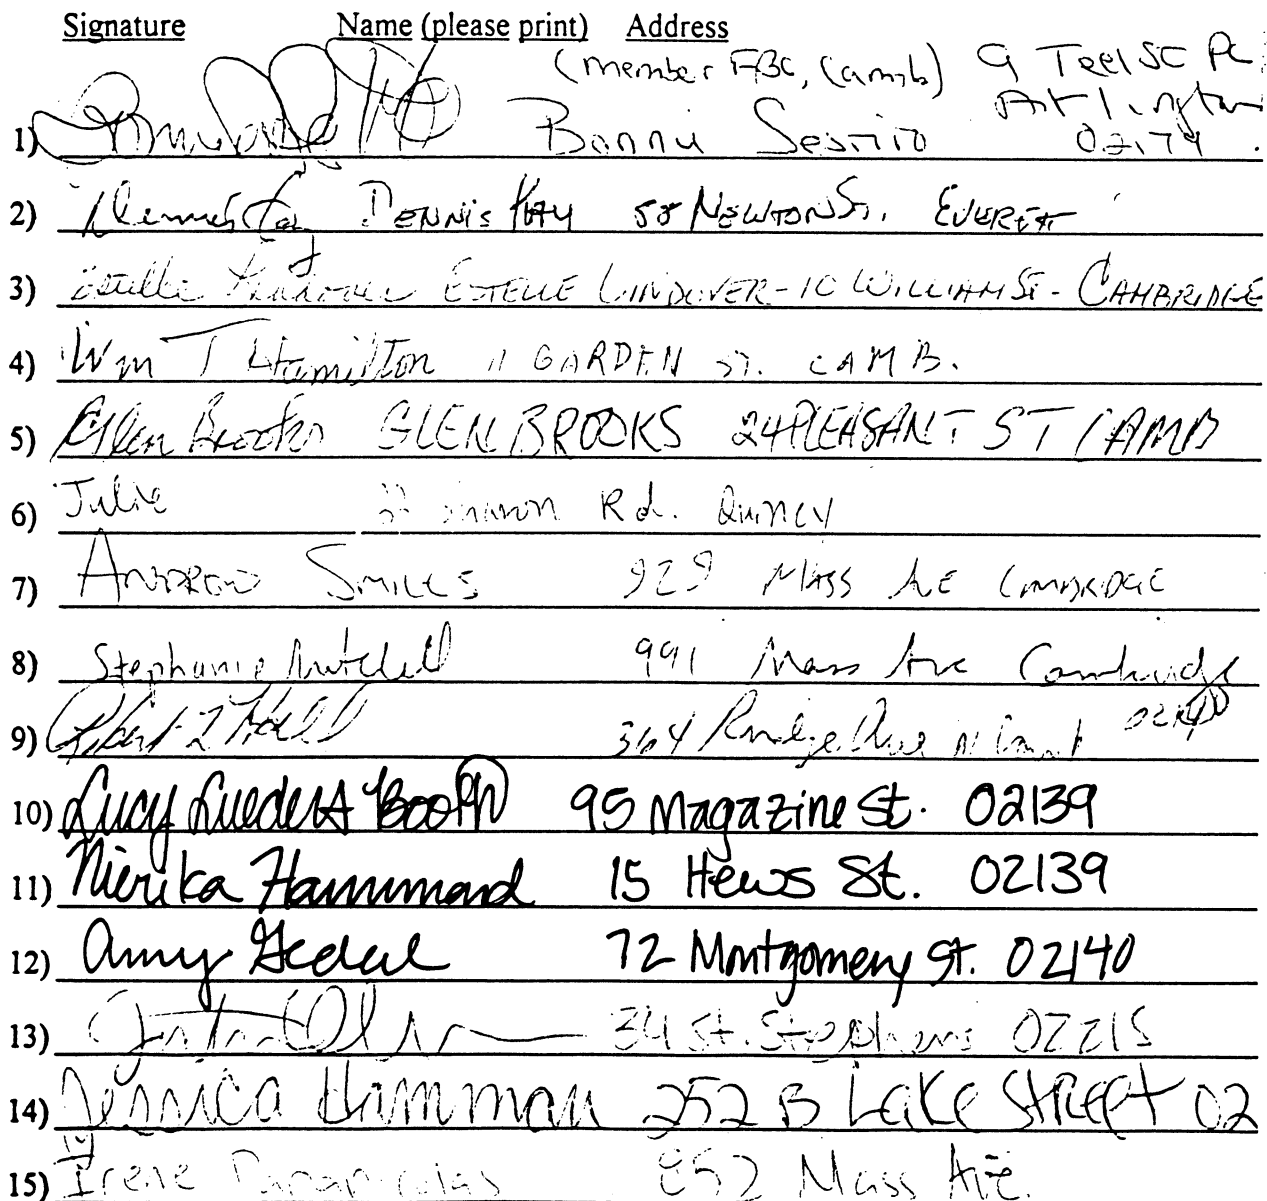 Signature Name (please print) Address
(member FBC, Camb) 9 Teel St Pl
Arlington
1) Bonnie Sestito 02174
2) Dennis Kay DENNIS KAY 58 NEWTON St. EVERETT
3) Estelle Lindover ESTELLE LINDOVER - 10 WILLIAM St - CAMBRIDGE
4) Wm T Hamilton 11 GARDEN ST. CAMB.
5) Glen Brooks GLEN BROOKS 24 PLEASANT ST CAMB
6) Julie Rd. Quincy
7) ANDREW SMILES 929 MASS AVE CAMBRIDGE
8) Stephanie Mitchell 991 Mass Ave Cambridge
9) Robert 364 Rindge Ave N Camb 02140
10) Lucy Lueders Booth 95 Magazine St. 02139
11) Nierika Hammond 15 Hews St. 02139
12) Amy 72 Montgomery St. 02140
13) 34 St. Stephens 02215
14) Jessica Hamman 252 B Lake Street 02
15) Irene 852 Mass Ave.